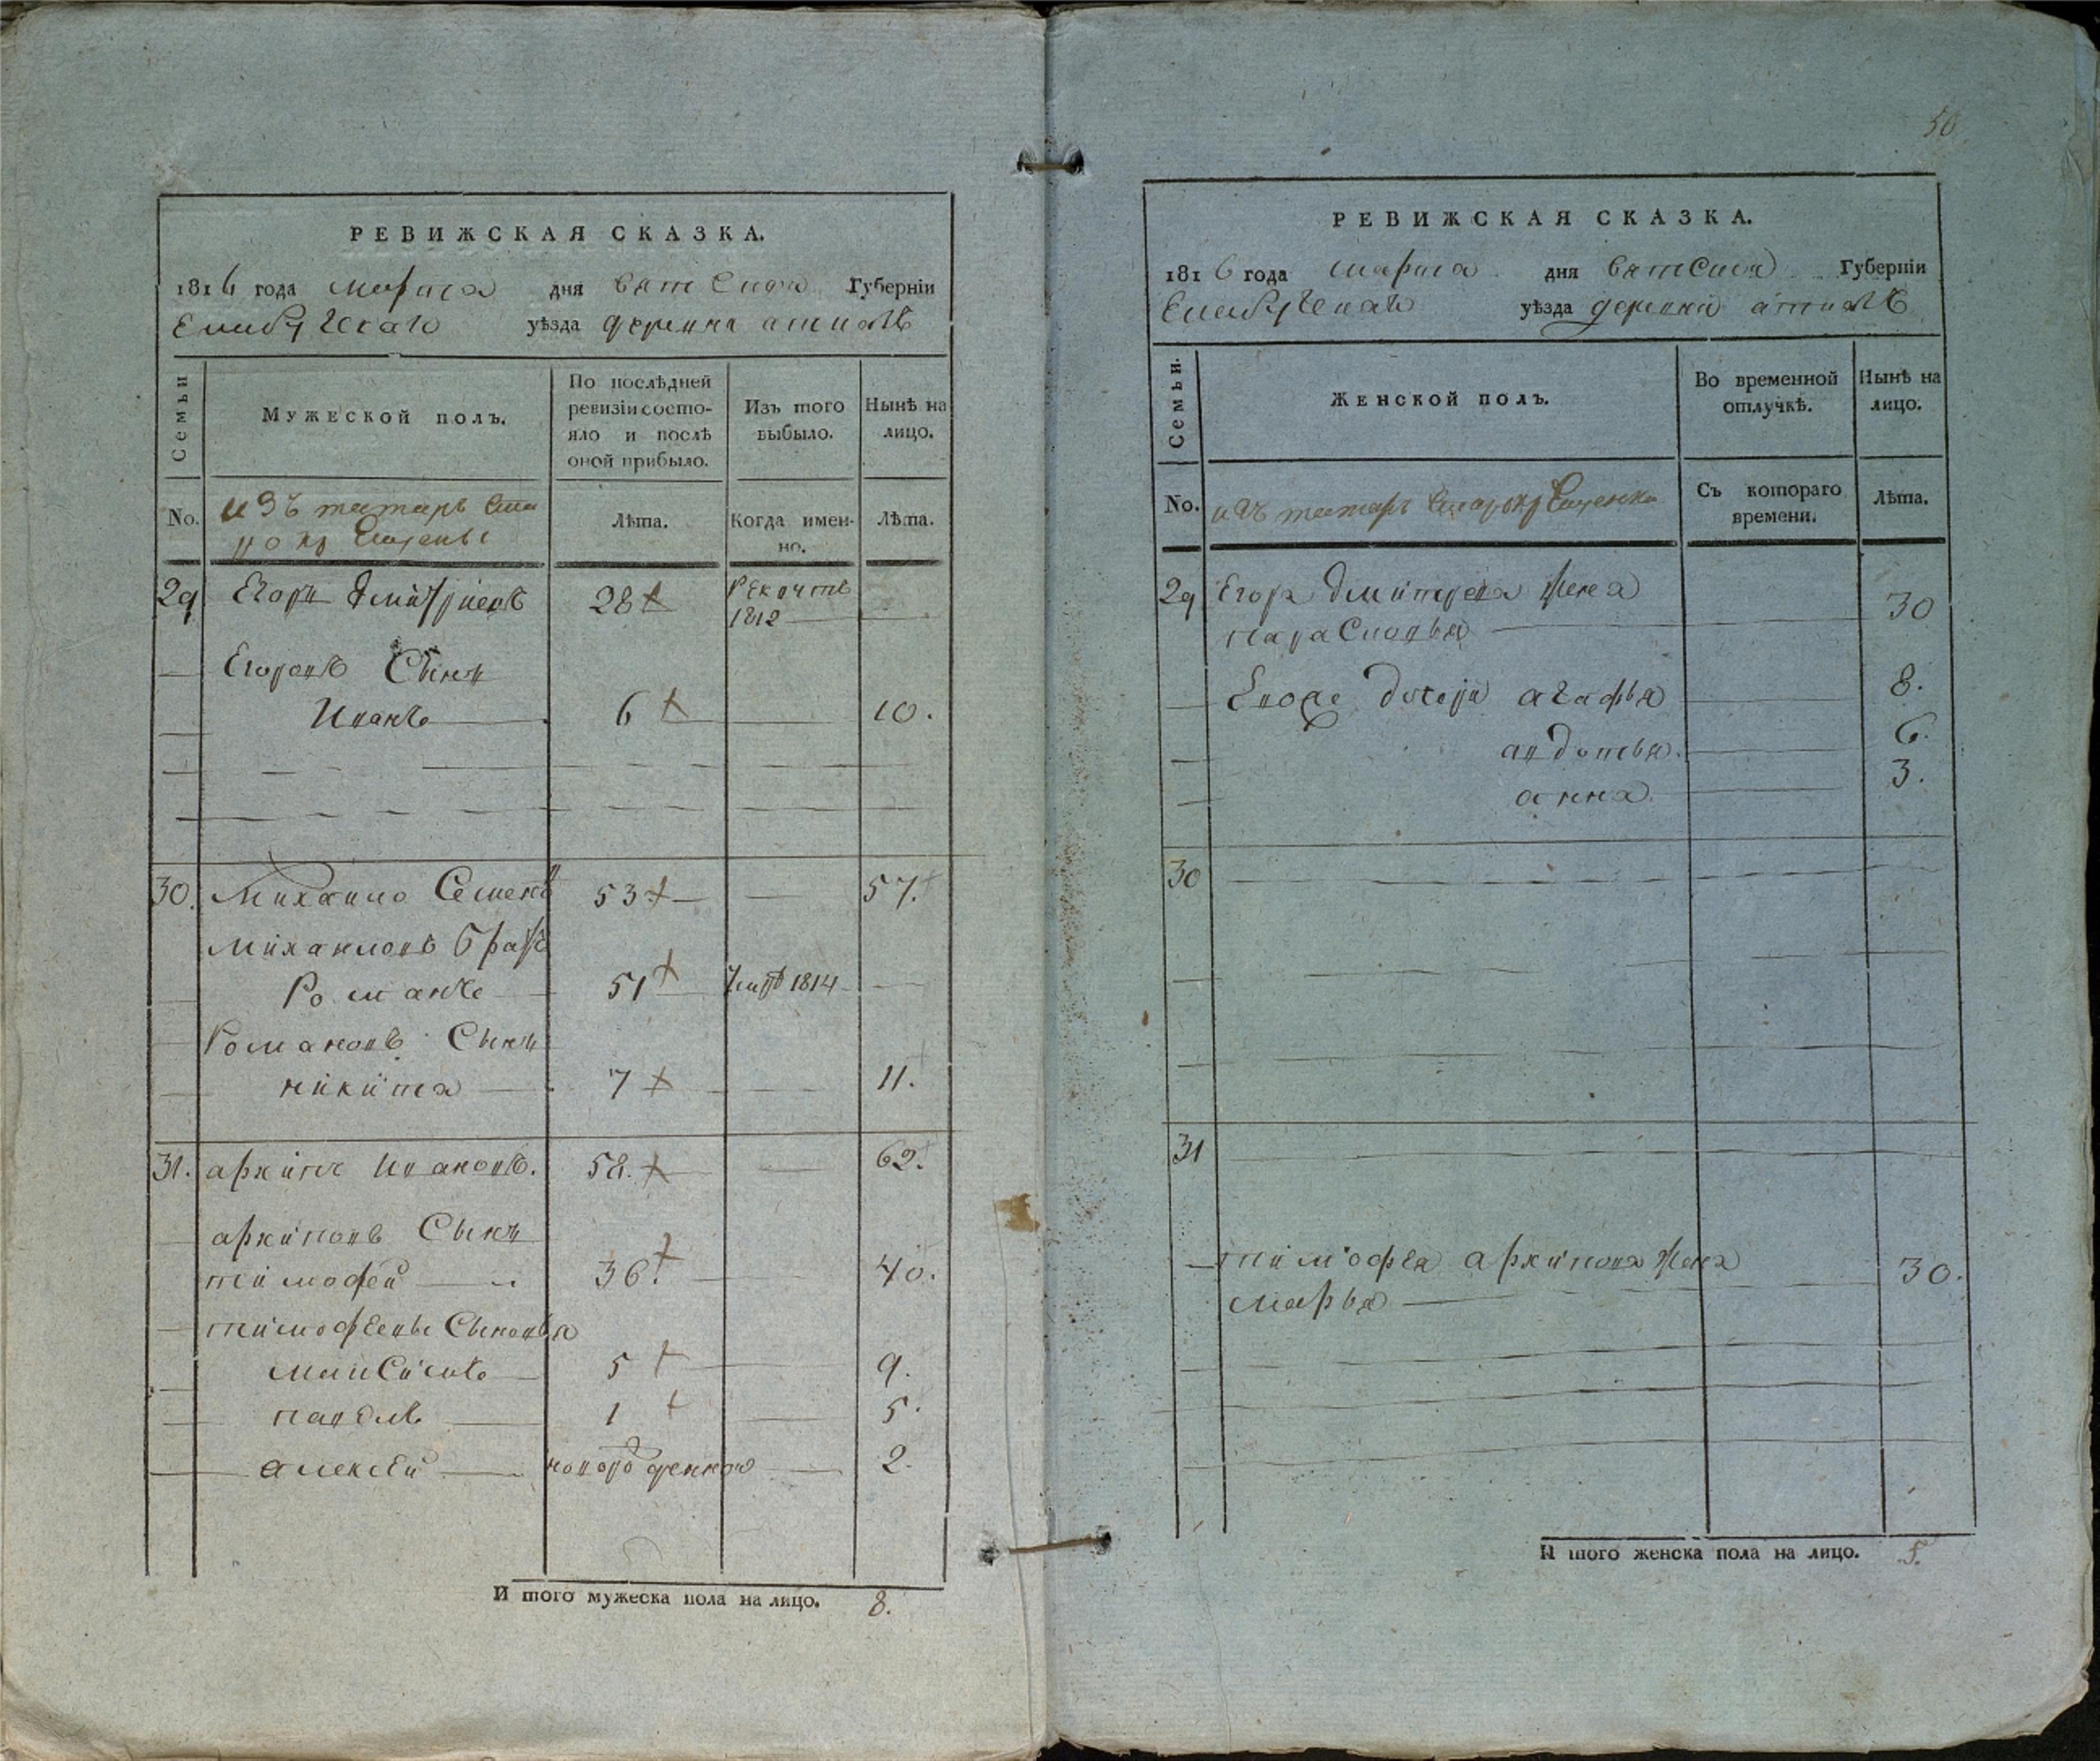 РЕВИЖСКАЯ СКАЗКА.
1816 года марта дня вятской Губернїи
Елабужскаго уѣзда деревни атиасъ
Семьи
Мужеской полъ.
По послѣдней ревизїи состо-
яло и послѣ
оной прибыло.
Изъ того
выбыло.
Нынѣ на
лицо.
No.
изъ татаръ ста
ро кр ещеныхъ
Лѣта.
Когда имен-
но.
Лѣта.
29 Егоръ дмитриевъ 28 рекрутъ
1812
Егоровъ Сынъ
Иванъ 6 10.
30. михаило Семенъ 53 57.
михаиловъ братъ
Романъ 51 умръ 1814
Романовъ Сынъ
никита 7 11.
31. архипъ ивановъ. 58. 62.
архиповъ Сынъ
тимофей 36. 40.
тимофеевы Сыновья
максимъ 5 9.
павелъ 1 5.
алексей новорожденной 2.
И того мужеска пола на лицо. 8.
50
РЕВИЖСКАЯ СКАЗКА.
1816 года марта дня вятской Губернїи
Елабужскаго уѣзда деревни
Семьи.
Женской полъ.
Во временной
отлучкѣ.
Нынѣ на
лицо.
No.
изъ татаръ старокрещеныхъ
Съ котораго
времени.
Лѣта.
29 Егора дмитрева жена
парасковья 30
Еворе дочери агафья 8.
авдотья 6.
анна 3.
30
31
тимофея архипова жена
марья 30.
И того женска пола на лицо. 5.